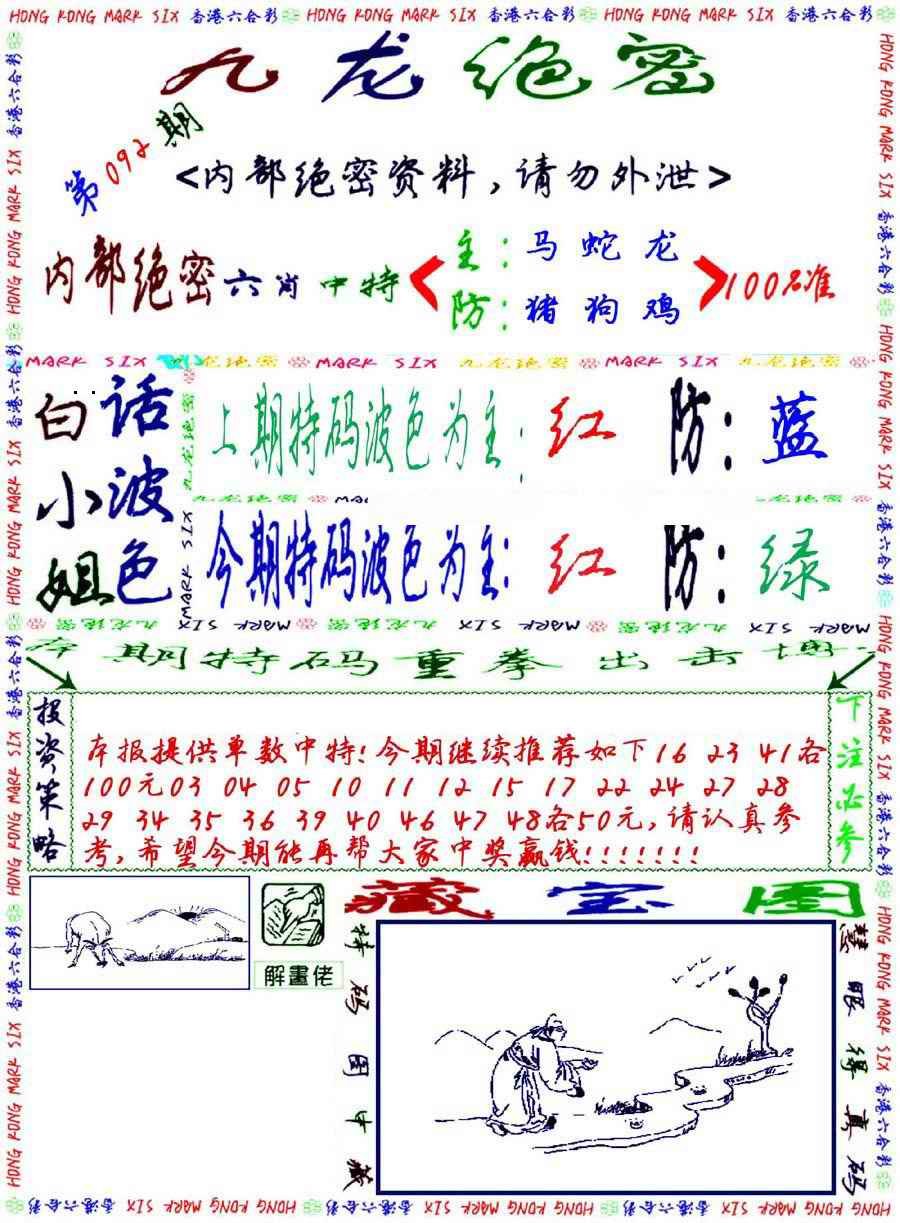 HONG KONG MARK SIX 香港六合彩 HONG KONG MARK SIX 香港六合彩 HONG KONG MARK SIX 香港六合彩
九龙绝密
第092期
<内部绝密资料,请勿外泄>
内部绝密六肖中特
主:马蛇龙
防:猪狗鸡
100%准
MARK SIX 九龙绝密 MARK SIX 九龙绝密 MARK SIX 九龙绝密
白话小波姐色
上期特码波色为主:红 防:蓝
今期特码波色为主:红 防:绿
九龙绝密 MARK SIX 九龙绝密 MARK SIX 九龙绝密 MARK SIX
期特码重拳出击
投资策略
本报提供单数中特!今期继续推荐如下16 23 41各
100元03 04 05 10 11 12 15 17 22 24 27 28
29 34 35 36 39 40 46 47 48各50元,请认真参
考,希望今期能再帮大家中奖赢钱!!!!!!!
下注必参
解畫佬
藏宝图
特码图中藏
慧眼得真码
HONG KONG MARK SIX 香港六合彩 HONG KONG MARK SIX 香港六合彩 HONG KONG MARK SIX 香港六合彩